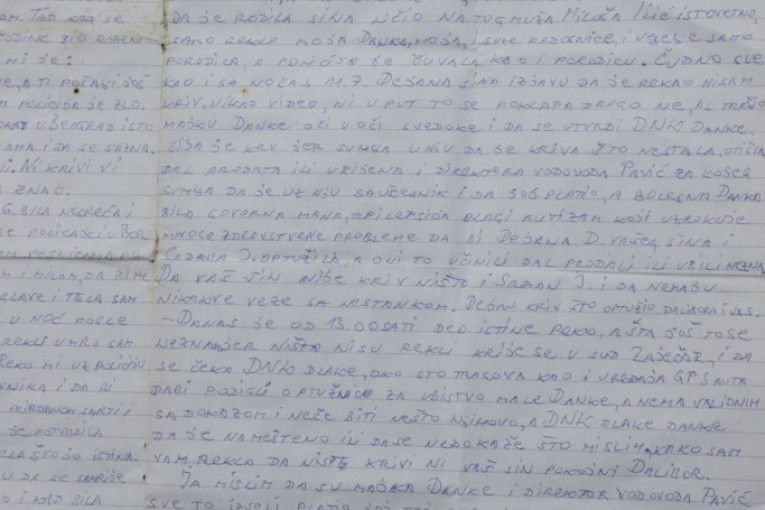 OM. TAD KADA SE
ODINE BIO ROĐENI
MI JE:
E, A TI POČASI JOŠ
M POLICIJA JE ZLO.
U BEOGRAD ISTO
AMA I DA SE SAZNA.
I. NI KRIVI VI
A ZNAO.
G. BILA NESREĆA I
SE POLICAJCI U BOR
M PESNICAMA PO
M I MILOM, DA BI ME
GLAVE I TELA SAM
U NOĆ POSLE
REKLI UMRO SAM
REKO MI UZ POLICIJU
VNIKA I DA BI
PRIRODNOM SMRTI I
JE POTVRDILA
ELA ŠTO JO ISTINA.
U DA SE SAKRIJE
O I KAD BILA
DA JE RODILA SINA LIČIO NA TOG MUŽA MILOŠA ILIĆ ISTOVETNO,
SAMO REKLA MOJA DANKA, MOJA, I SVIJE RADOSNICE, I VESELJE SAMO
PORODICA, A POLICIJA JE ČUVALA KAO I PORODICU. ČUDNO SVE
KAO I SA NOĆAS 11.7. DEJANA SINA IZJAVU DA JE REKAO NISAM
KRIV. NIKAD VIDEO, NI U PUT TO SE POKLAPA DRUGO NE, AL TRAŽIO
MAJKU DANKE OČI U OČI SVEDOKE I DA SE UTVRDI DNK DANKE.
ČIJA JE KRV JER SUMJA U NJU DA SE KRIVA ŠTO NESTALA, OTIŠLA
DAL PRODATA ILI UBIJENA I DIREKTORA VODOVODA PAVIĆ ZA KOJEG
SUMJA DA JE UZ NJU SAUČESNIK I DA JOJ PLATIO, A BOLESNA DANKA
BILA GOVORNA MANA, EPILEPSIJA BLAGI AUTIZAM KOJI UZROKUJE
MNOGE ZDRAVSTVENE PROBLEME DA BI DEJANA D. VAŠEG SINA I
SRĐANA J. OPTUŽILA, A OVI TO UČINILI DAL PRODALI ILI UBILI NEZNA
DA VAŠ SIN NIJE KRIV NIŠTO I SRĐAN J. I DA NEMAJU
NIKAKVE VEZE SA NESTANKOM. DEJAN KRIV ŠTO OPTUŽIO DALIBORA I VAS.
– DANAS JE OD 13.00 SATI DEO ISTINE REKO, A ŠTA JOŠ TO SE
NEZNA JER NIŠTA NISU REKLI KRIJE SE U SUD ZAJEČAR, I DA
SE ČEKA DNK DLAKE, OKO STO TRAGOVA KAO I UREĐAJA GPS AUTA
DA BI PODIGLI OPTUŽNICU ZA UBISTVO MALE DANKE, A NEMA VALIDNIH
SA DOKAZOM I NEĆE BITI NEŠTO NJIHOVO, A DNK DLAKE DANKE
DA JE NAMEŠTENO ILI DA SE NEDOKAŽE ŠTO MISLIM, KAKO SAM
VAM REKLA DA NISTE KRIVI NI VAŠ SIN POKOJNI DALIBOR.
JA MISLIM DA SU MAJKA DANKE I DIREKTOR VODOVODA PAVIĆ
SVE TO IZVELI PLATIO